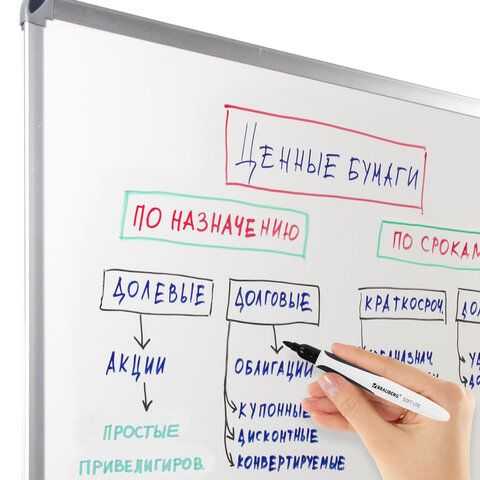 ЦЕННЫЕ БУМАГИ
ПО НАЗНАЧЕНИЮ
ПО СРОКАМ
ДОЛЕВЫЕ
ДОЛГОВЫЕ
КРАТКОСРОЧ.
АКЦИИ
ОБЛИГАЦИИ
КУПОННЫЕ
ДИСКОНТНЫЕ
КОНВЕРТИРУЕМЫЕ
ПРОСТЫЕ
ПРИВЕЛИГИРОВ.
BRAUBERG SOFT LITE